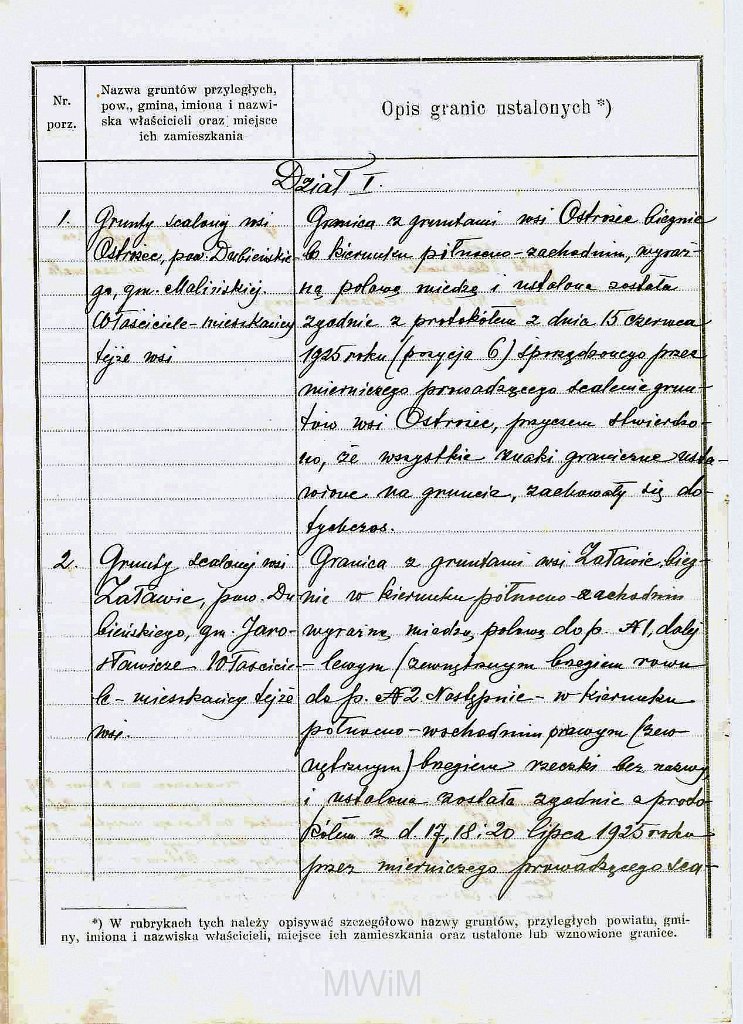 Nr.
porz.
Nazwa gruntów przyległych,
pow., gmina, imiona i nazwi-
ska właścicieli oraz miejsce
ich zamieszkania
Opis granic ustalonych *)
Dział I.
1.
Grunty scalonej wsi
Ostrożec, pow. Dubieńskie-
go, gm. Malińskiej.
Właściciele - mieszkańcy
tejże wsi
Granica z gruntami wsi Ostrożec biegnie
w kierunku północno-zachodnim, wyraź-
ną polową miedzą i ustalona została
zgodnie z protokółem z dnia 15 czerwca
1925 roku (pozycja 6) sporządzonego przez
mierniczego prowadzącego scalenie grun-
tów wsi Ostrożec, przyczem stwierdzo-
no, że wszystkie znaki graniczne usta-
wione na gruncie, zachowały się do-
tychczas.
2.
Grunty scalonej wsi
Załawie, pow. Du-
bieńskiego, gm. Jaro-
sławicze. Właścicie-
le - mieszkańcy tejże
wsi.
Granica z gruntami wsi Załawie, bieg-
nie w kierunku północno-zachodnim
wyraźną miedzą polową do p. A1, dalej
- lewym (zewnętrznym brzegiem rowu
do p. A2 Następnie - w kierunku
północno-wschodnim prawym (zew-
nętrznym) brzegiem rzeczki bez nazwy,
i ustalona została zgodnie z proto-
kółem z d. 17, 18 i 20 lipca 1925 roku
przez mierniczego prowadzącego sca-
*) W rubrykach tych należy opisywać szczegółowo nazwy gruntów, przyległych powiatu, gmi-
ny, imiona i nazwiska właścicieli, miejsce ich zamieszkania oraz ustalone lub wznowione granice.
MWiM